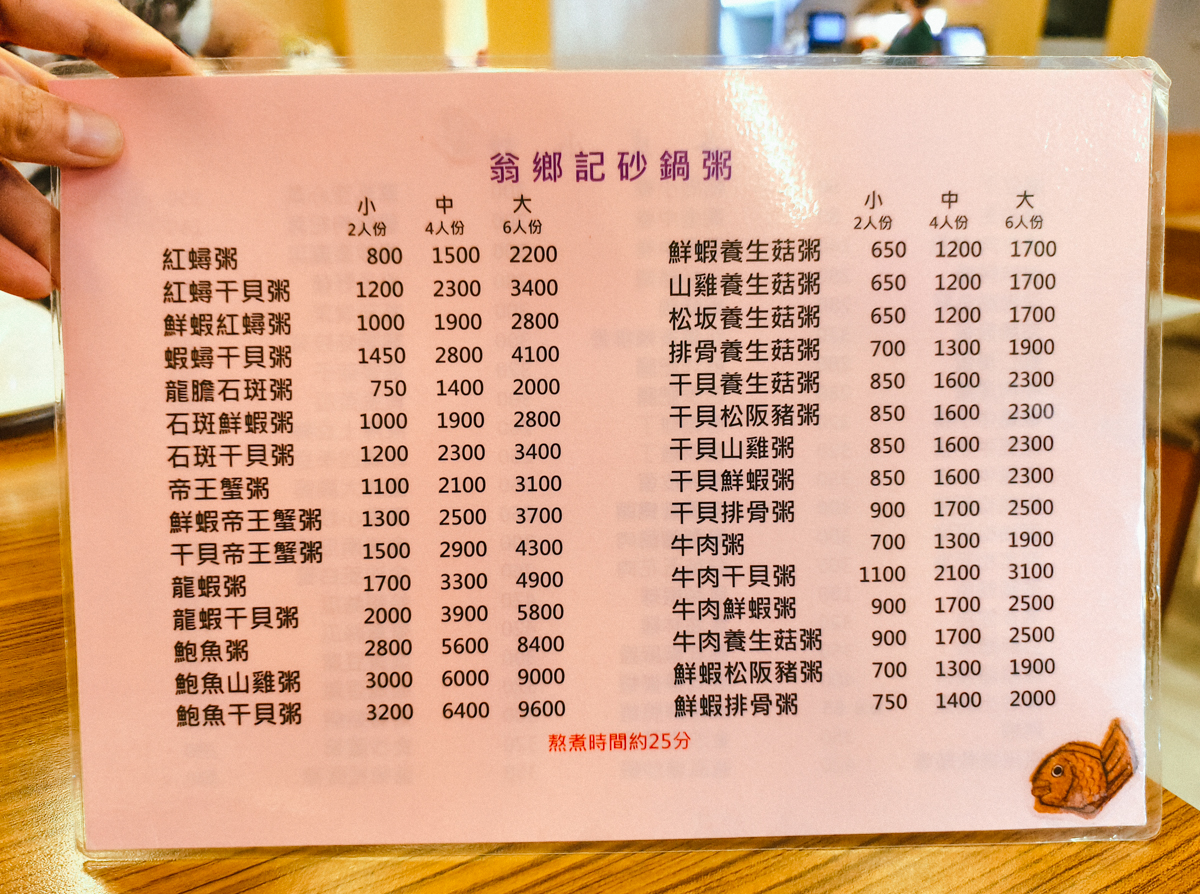 翁鄉記砂鍋粥
小 中 大
2人份 4人份 6人份
紅蟳粥 800 1500 2200
紅蟳干貝粥 1200 2300 3400
鮮蝦紅蟳粥 1000 1900 2800
蝦蟳干貝粥 1450 2800 4100
龍膽石斑粥 750 1400 2000
石斑鮮蝦粥 1000 1900 2800
石斑干貝粥 1200 2300 3400
帝王蟹粥 1100 2100 3100
鮮蝦帝王蟹粥 1300 2500 3700
干貝帝王蟹粥 1500 2900 4300
龍蝦粥 1700 3300 4900
龍蝦干貝粥 2000 3900 5800
鮑魚粥 2800 5600 8400
鮑魚山雞粥 3000 6000 9000
鮑魚干貝粥 3200 6400 9600
小 中 大
2人份 4人份 6人份
鮮蝦養生菇粥 650 1200 1700
山雞養生菇粥 650 1200 1700
松坂養生菇粥 650 1200 1700
排骨養生菇粥 700 1300 1900
干貝養生菇粥 850 1600 2300
干貝松阪豬粥 850 1600 2300
干貝山雞粥 850 1600 2300
干貝鮮蝦粥 850 1600 2300
干貝排骨粥 900 1700 2500
牛肉粥 700 1300 1900
牛肉干貝粥 1100 2100 3100
牛肉鮮蝦粥 900 1700 2500
牛肉養生菇粥 900 1700 2500
鮮蝦松阪豬粥 700 1300 1900
鮮蝦排骨粥 750 1400 2000
熬煮時間約25分